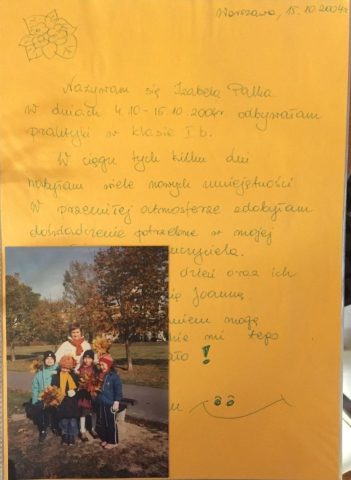 Warszawa, 15.10.2004r
Nazywam się Izabela Palka
W dniach 4.10-15.10.2004r odbywałam
praktyki w klasie I b.
W ciągu tych kilku dni
nabyłam wiele nowych umiejętności
W przemiłej atmosferze zdobyłam
doświadczenie potrzebne w mojej
dzień oraz ich
się Joanną
mogę
mi tego
!